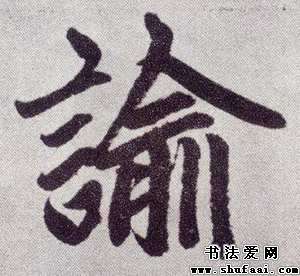 諭
书法爱网
www.shufaai.com